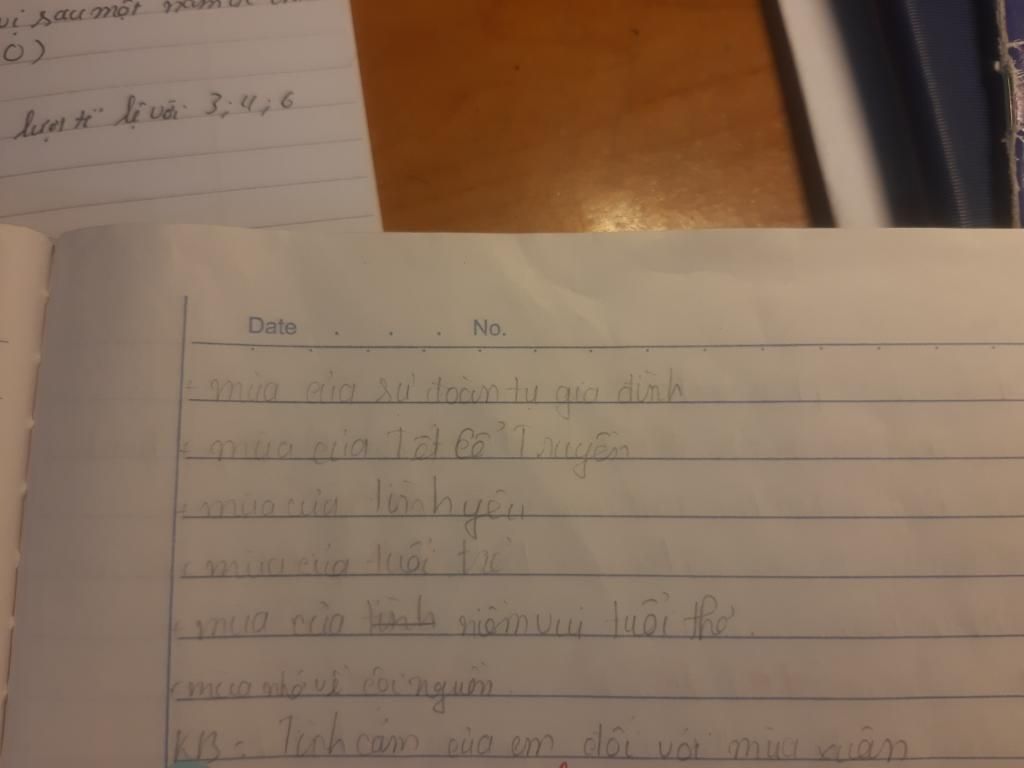 vị sau một năm
0)
lượt tỉ lệ với 3; 4; 6
Date . . . No.
+ mùa của sự đoàn tụ gia đình
+ mùa của Tết Cổ Truyền
+ mùa của tình yêu
+ mùa của tuổi trẻ
+ mùa của tình niềm vui tuổi thơ
+ mùa nhớ về cội nguồn
KB: Tình cảm của em đối với mùa xuân